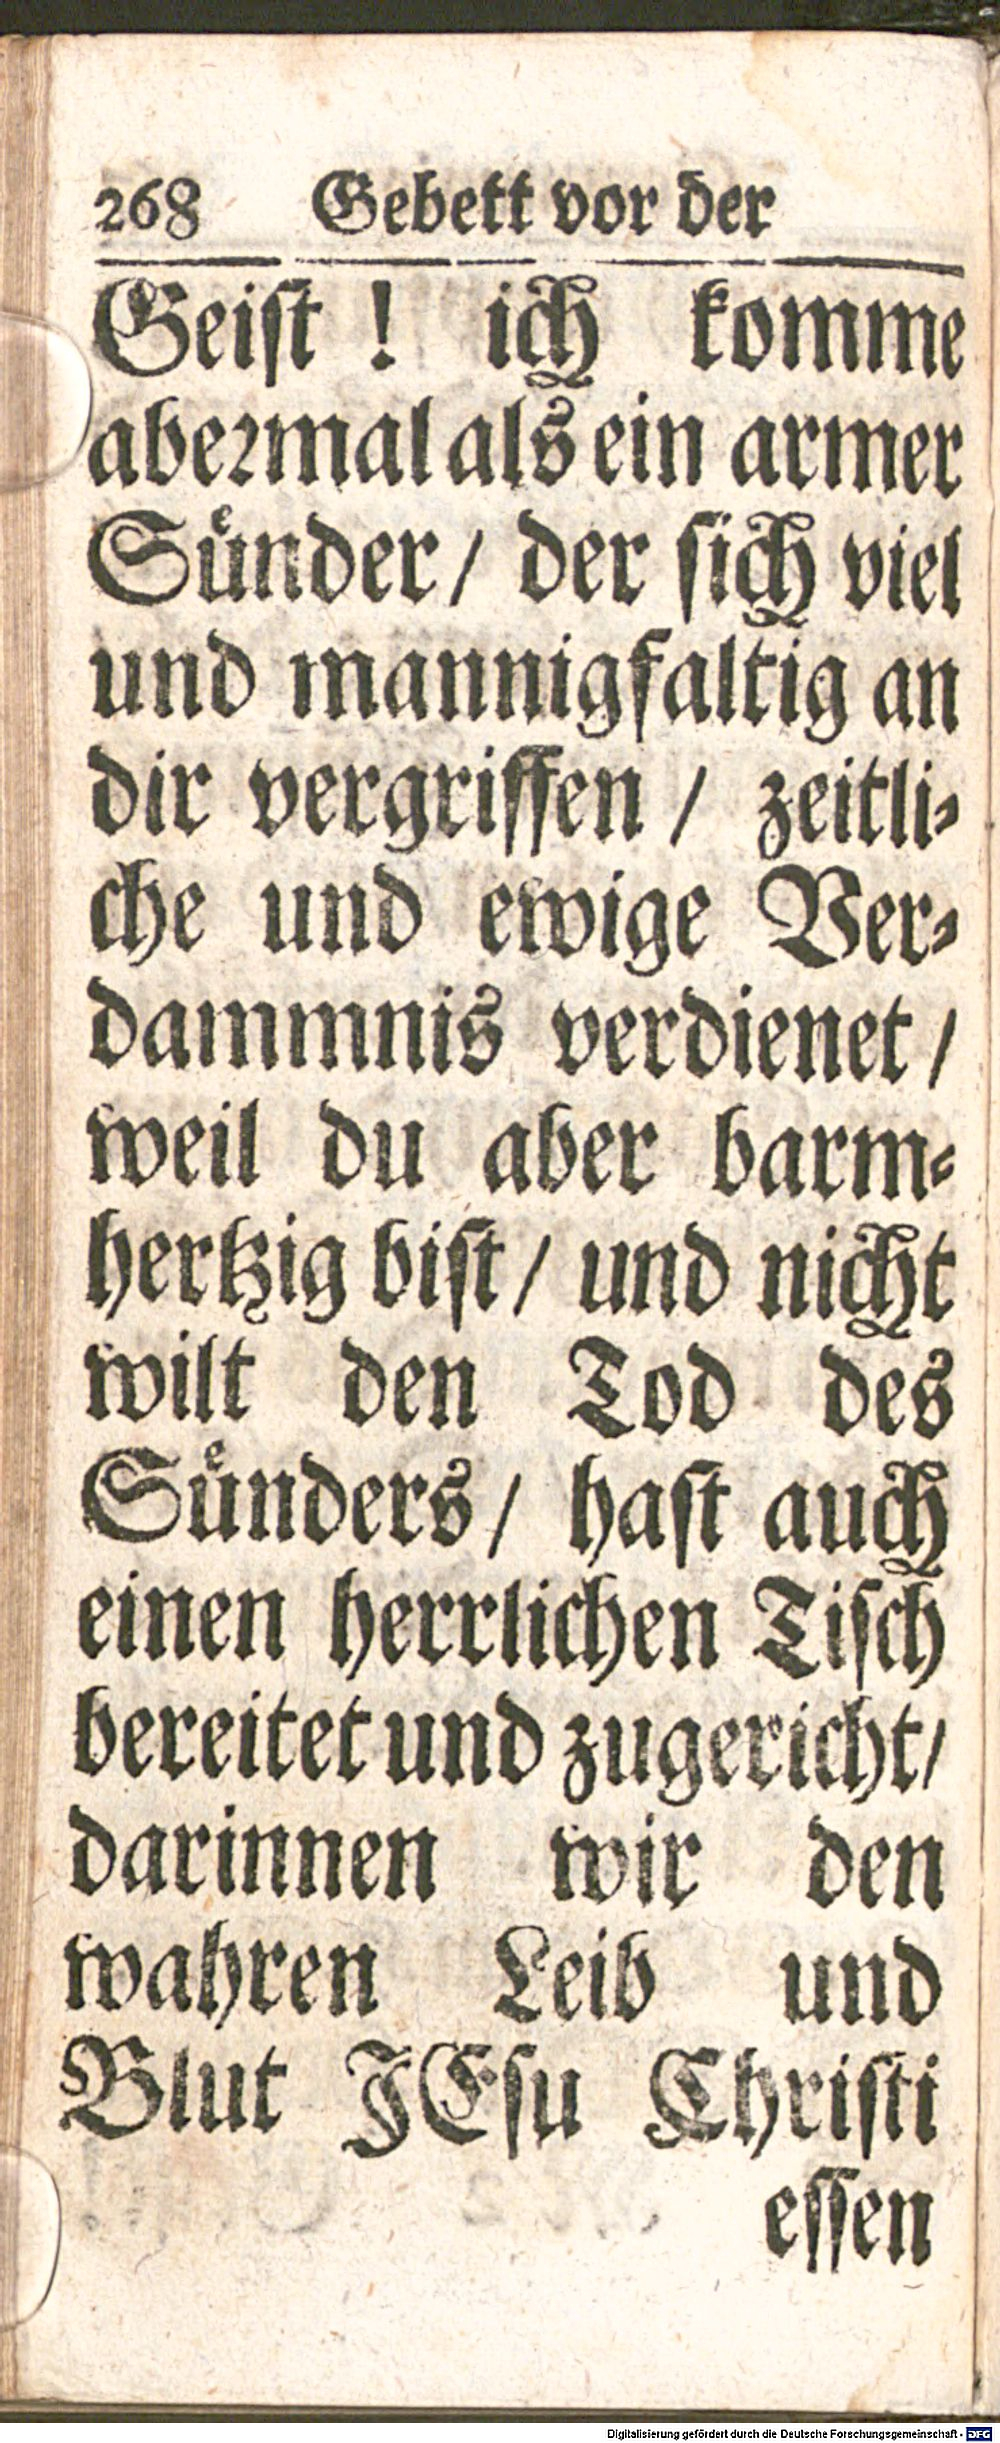 268 Gebett vor der
Geiſt ! ich komme
abeꝛmal als ein armer
Suͤnder / der ſich viel
und mannigfaltig an
dir vergriffen / zeitli⸗
che und ewige Ver⸗
dammnis verdienet /
weil du aber barm⸗
hertzig biſt / und nicht
wilt den Tod des
Suͤnders / haſt auch
einen herrlichen Tiſch
bereitet und zugericht /
darinnen wir den
wahren Leib und
Blut JEſu Chriſti
eſſen
Digitalisierung gefördert durch die Deutsche Forschungsgemeinschaft - DFG